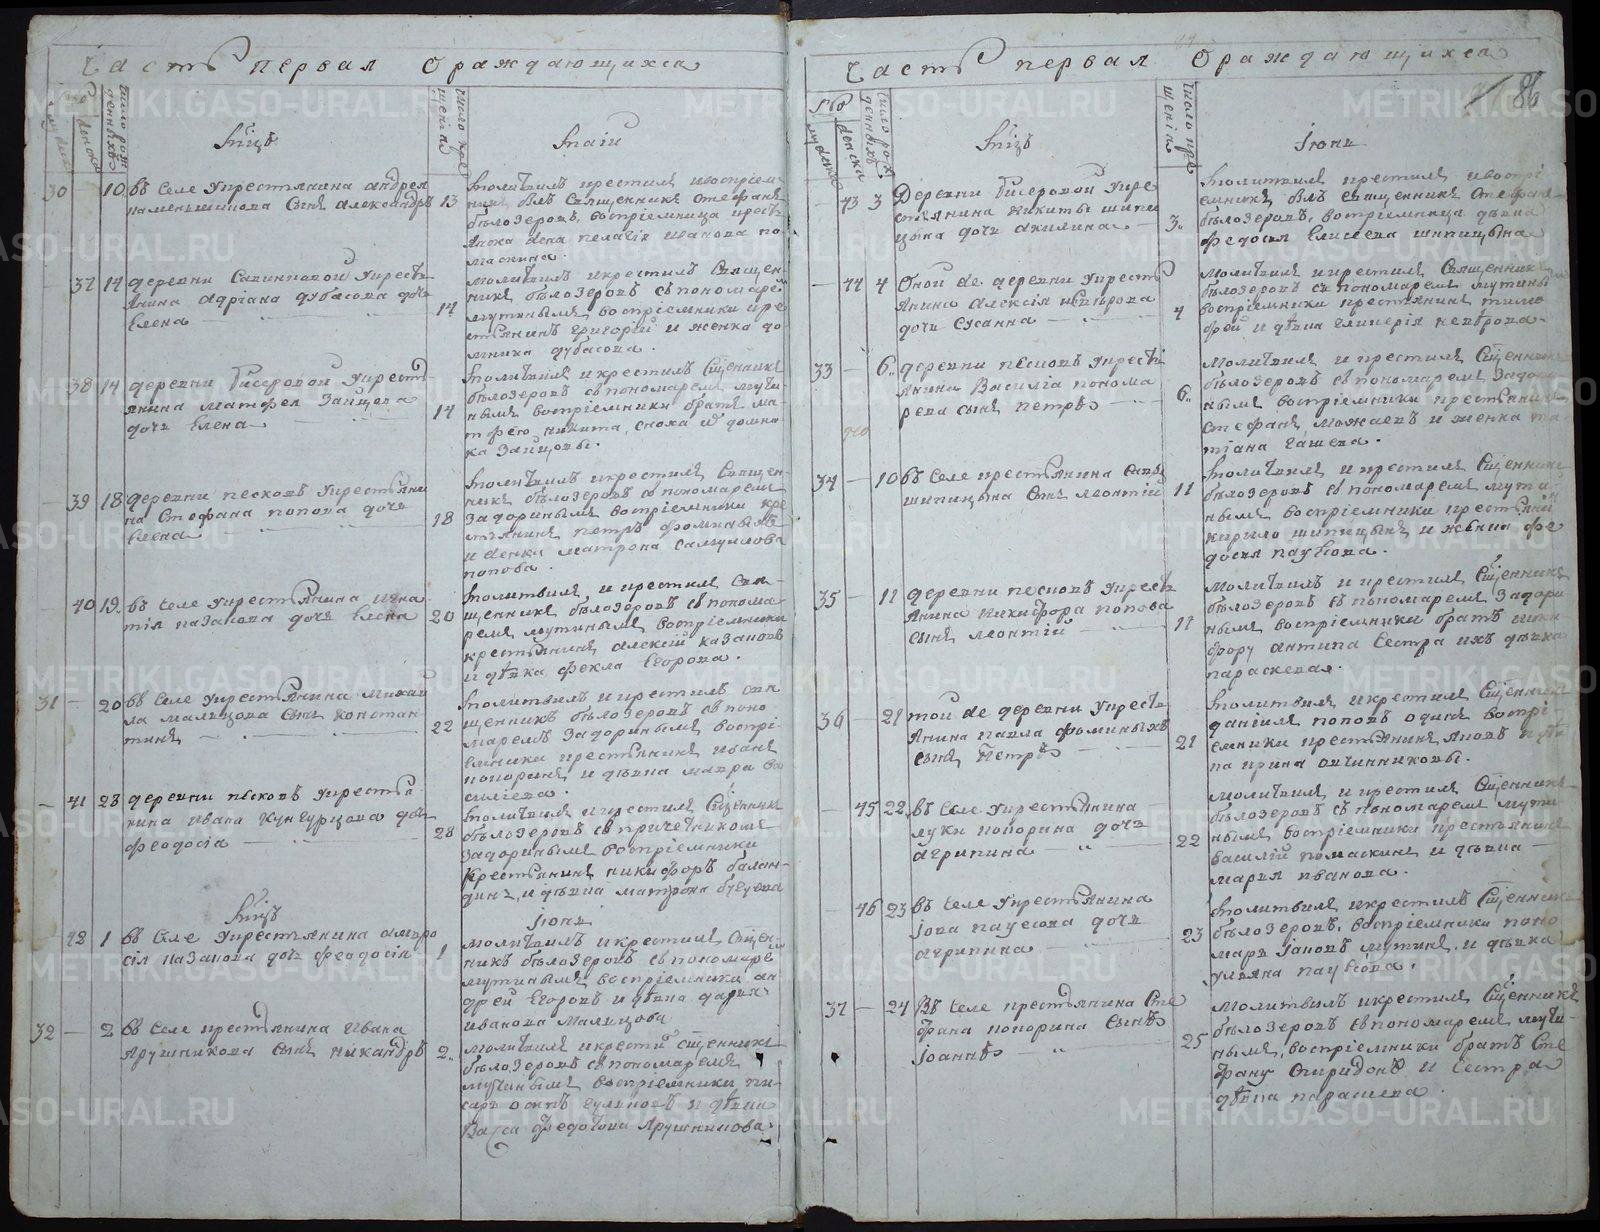 Часть первая о раждающихся
мужеска
женска
число рож
денныхъ
число кре
щенія
Маіи
30
10
въ селе у крестьянина андрея
сынъ александръ
13
молитвилъ крестилъ и воспріем
никъ былъ священникъ стефанъ
белозеровъ, воспріемница крест
женка пелагія иванова по
маскина
37
14
деревни у кресть
янина адріана дубасова дочь
елена
14
молитвилъ и крестилъ священ
никъ белозеровъ съ пономаре
мутинымъ, воспріемники кре
стьянинъ григорій и женка до
мника дубасова.
38
14
деревни бисеровой у кресть
янина матфея зайцева
дочь елена
14
молитвилъ и крестилъ священникъ
белозеровъ съ пономаремъ мути
нымъ воспріемники братъ ма
тфею никита, сноха домни
ка зайцовы.
39
18
деревни песковъ у крестьяни
на стефана попова дочь
елена
18
молитвилъ и крестилъ священ
никъ белозеровъ съ пономаремъ
задоринымъ воспріемники кре
стьянинъ петръ
и девка матрона самуилова
попова.
40
19
въ селе у крестьянина игна
тія казанова дочь елена
20
молитвилъ, и крестилъ свя
щенникъ белозеровъ съ понома
ремъ мутинымъ, воспріемники
крестьянинъ алексій казановъ
и девка фекла егорова.
31
20
въ селе у крестьянина михаи
ла мальцова сынъ констан
тинъ
22
молитвилъ и крестилъ свя
щенникъ белозеровъ съ поно
маремъ задоринымъ воспрі
емники крестьянинъ иванъ
копоринъ и девка мавра ва
силіева.
41
28
деревни песковъ у крестья
нина ивана кунгурцова дочь
феодосія
28
молитвилъ и крестилъ священникъ
белозеровъ съ причетникомъ
задоринымъ воспріемники
крестьянинъ никифоръ балан
динъ, и девка матрона
Іюнь
42
1
въ селе у крестьянина амвро
сія казанова дочь феодосія
1
молитвилъ и крестилъ священ
никъ белозеровъ съ пономаре
мутинымъ, воспріемники ан
дрей егоровъ и девка дарья
иванова мальцова
32
2
въ селе крестьянина ивана
ярушникова сынъ никандръ
2
молитвилъ и крестилъ священникъ
белозеровъ съ пономаремъ
мутинымъ воспріемники пи
сарь и девка
васса федотова ярушникова
Часть первая о раждающихся
86
мужеска
женска
число рож
денныхъ
число кре
щенія
Іюнь
43
3
Деревни бисеровой у кре
стьянина никиты шипи
цына дочь акилина
3
молитвилъ крестилъ и воспрі
емникъ былъ священникъ стефанъ
белозеровъ, воспріемница девка
федосья елисеева шипицына
44
4
Оной же деревни у кресть
янина алексія
дочь сусанна
4
молитвилъ и крестилъ священникъ
белозеровъ съ пономаремъ мутины
воспріемники крестьянинъ тимо
фей и девка гликерія
33
6
деревни песковъ у кресть
янина василія понома
рева сынъ петръ
6
молитвилъ и крестилъ священникъ
белозеровъ съ пономаремъ задори
нымъ воспріемники крестьянинъ
стефанъ, можаевъ и женка та
тіана гашева.
34
10
въ селе крестьянина
шипицына сынъ леонтій
11
молитвилъ и крестилъ священникъ
белозеровъ съ пономаремъ мути
нымъ воспріемники крестьянинъ
кирило шипицынъ и женка фе
досья паукова.
35
11
деревни песковъ у кресть
янина никифора попова
сынъ леонтій
11
молитвилъ и крестилъ священникъ
белозеровъ съ пономаремъ задори
нымъ воспріемники братъ ники
фору антипа сестра ихъ девка
параскева.
36
21
той же деревни у кресть
янина павла фоминыхъ
сынъ петръ
21
молитвилъ и крестилъ священникъ
даніилъ поповъ одинъ воспрі
емники крестьянинъ яковъ
ирина овчинниковы.
45
22
въ селе у крестьянина
луки копорина дочь
агрипина
22
молитвилъ и крестилъ священникъ
белозеровъ съ пономаремъ мути
нымъ, воспріемники крестьянинъ
василій помаскинъ и девка
марья иванова.
46
23
въ селе у крестьянина
іова паукова дочь
агрипина
23
молитвилъ и крестилъ священникъ
белозеровъ, воспріемники поно
марь іаковъ мутинъ, и девка
ульяна паукова.
37
24
Въ селе крестьянина сте
фана копорина сынъ
іоаннъ
25
молитвилъ и крестилъ священникъ
белозеровъ съ пономаремъ мути
нымъ, воспріемники братъ сте
фану спиридонъ и сестра
девка парасковья.